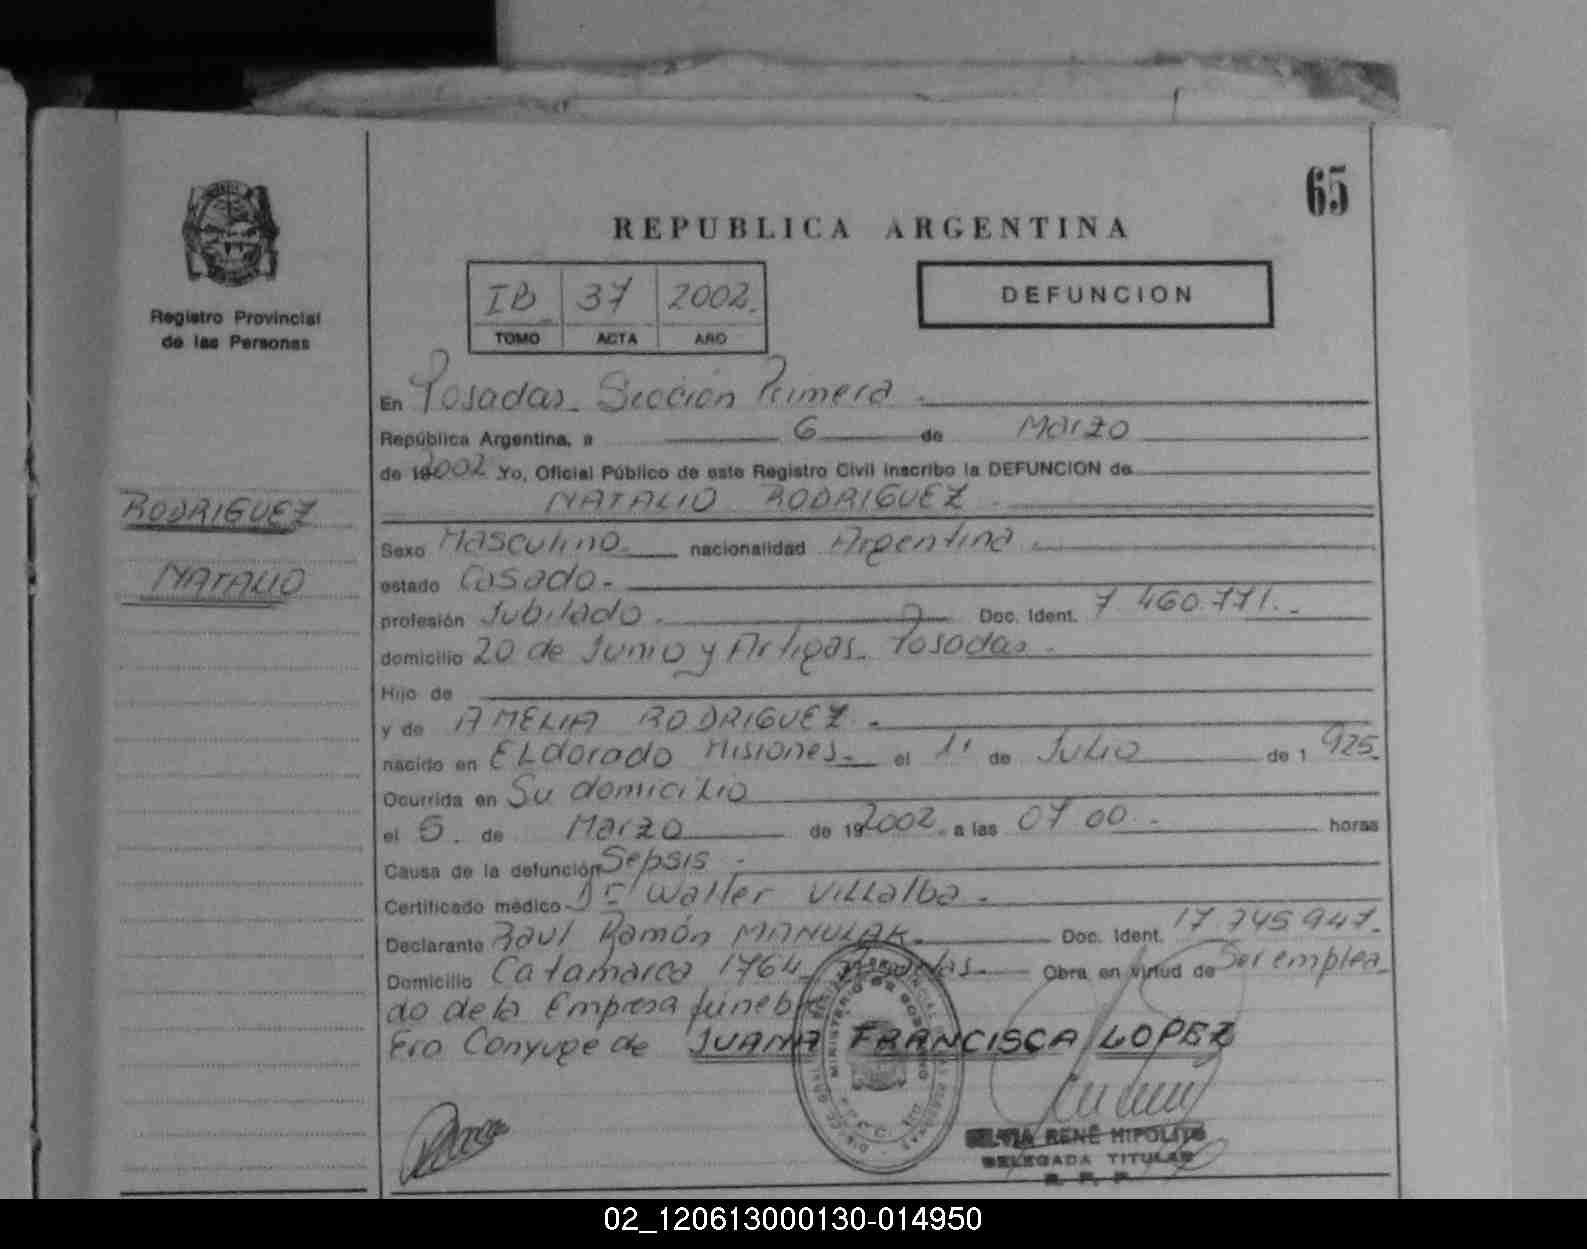 65
REPUBLICA ARGENTINA
Registro Provincial
de las Personas
IB 37 2002
TOMO ACTA AÑO
DEFUNCION
En Posadas. Sección Primera
República Argentina, a 6 de Marzo
de 192002 Yo, Oficial Público de este Registro Civil inscribo la DEFUNCION de
NATALIO RODRIGUEZ
RODRIGUEZ
NATALIO
Sexo Masculino nacionalidad Argentina
estado Casado.
profesión Jubilado Doc. Ident. 7.460.771.
domicilio 20 de Junio y Artigas. Posadas.
Hijo de
y de AMELIA RODRIGUEZ.
nacido en ELdorado Misiones. el 1º de JuLio de 1 925.
Ocurrida en Su domiciLio
el 5. de Marzo de 192002. a las 07 00. horas
Causa de la defunción Sepsis.
Certificado médico Dr Walter ViLLalba.
Declarante Raul Ramón MANULAK. Doc. Ident. 17.745.947.
Domicilio Catamarca 1764 Posadas Obra en virtud de Ser emplea
do de la Empresa funeb
Era Conyuge de JUANA FRANCISCA LOPEZ
MINISTERIO DE GOBIERNO
SILVIA RENÉ HIPOLITO
DELEGADA TITULAR
R. P. P.
02_120613000130-014950